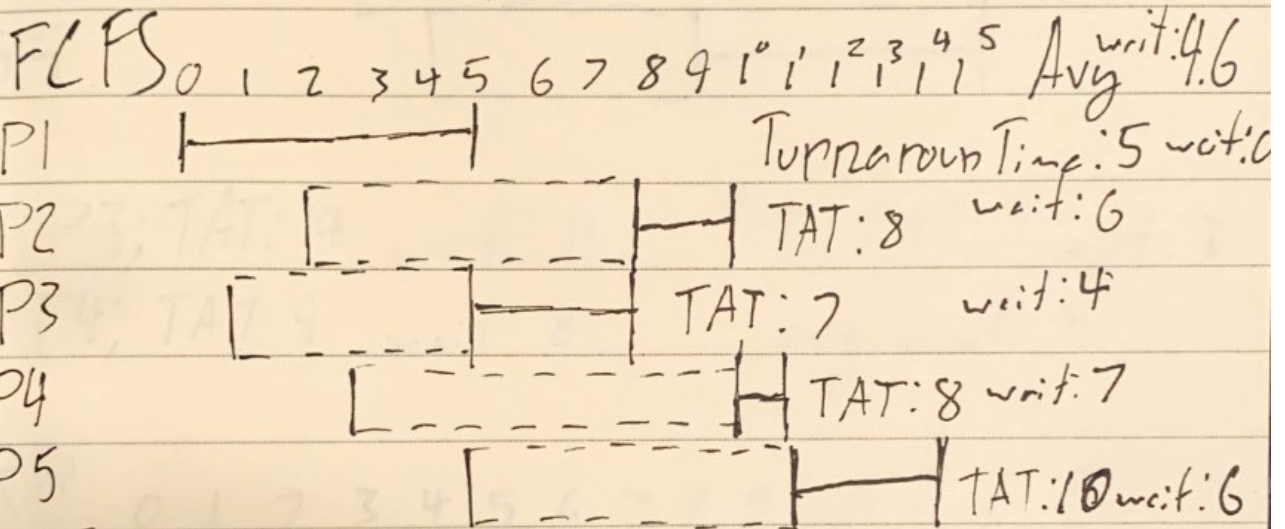 FCFS 0 1 2 3 4 5 6 7 8 9 10 11 12 13 14 15 Avg wait: 4.6
P1 Turnaroun Time: 5 wait: 0
P2 TAT: 8 wait: 6
P3 TAT: 7 wait: 4
P4 TAT: 8 wait: 7
P5 TAT: 10 wait: 6